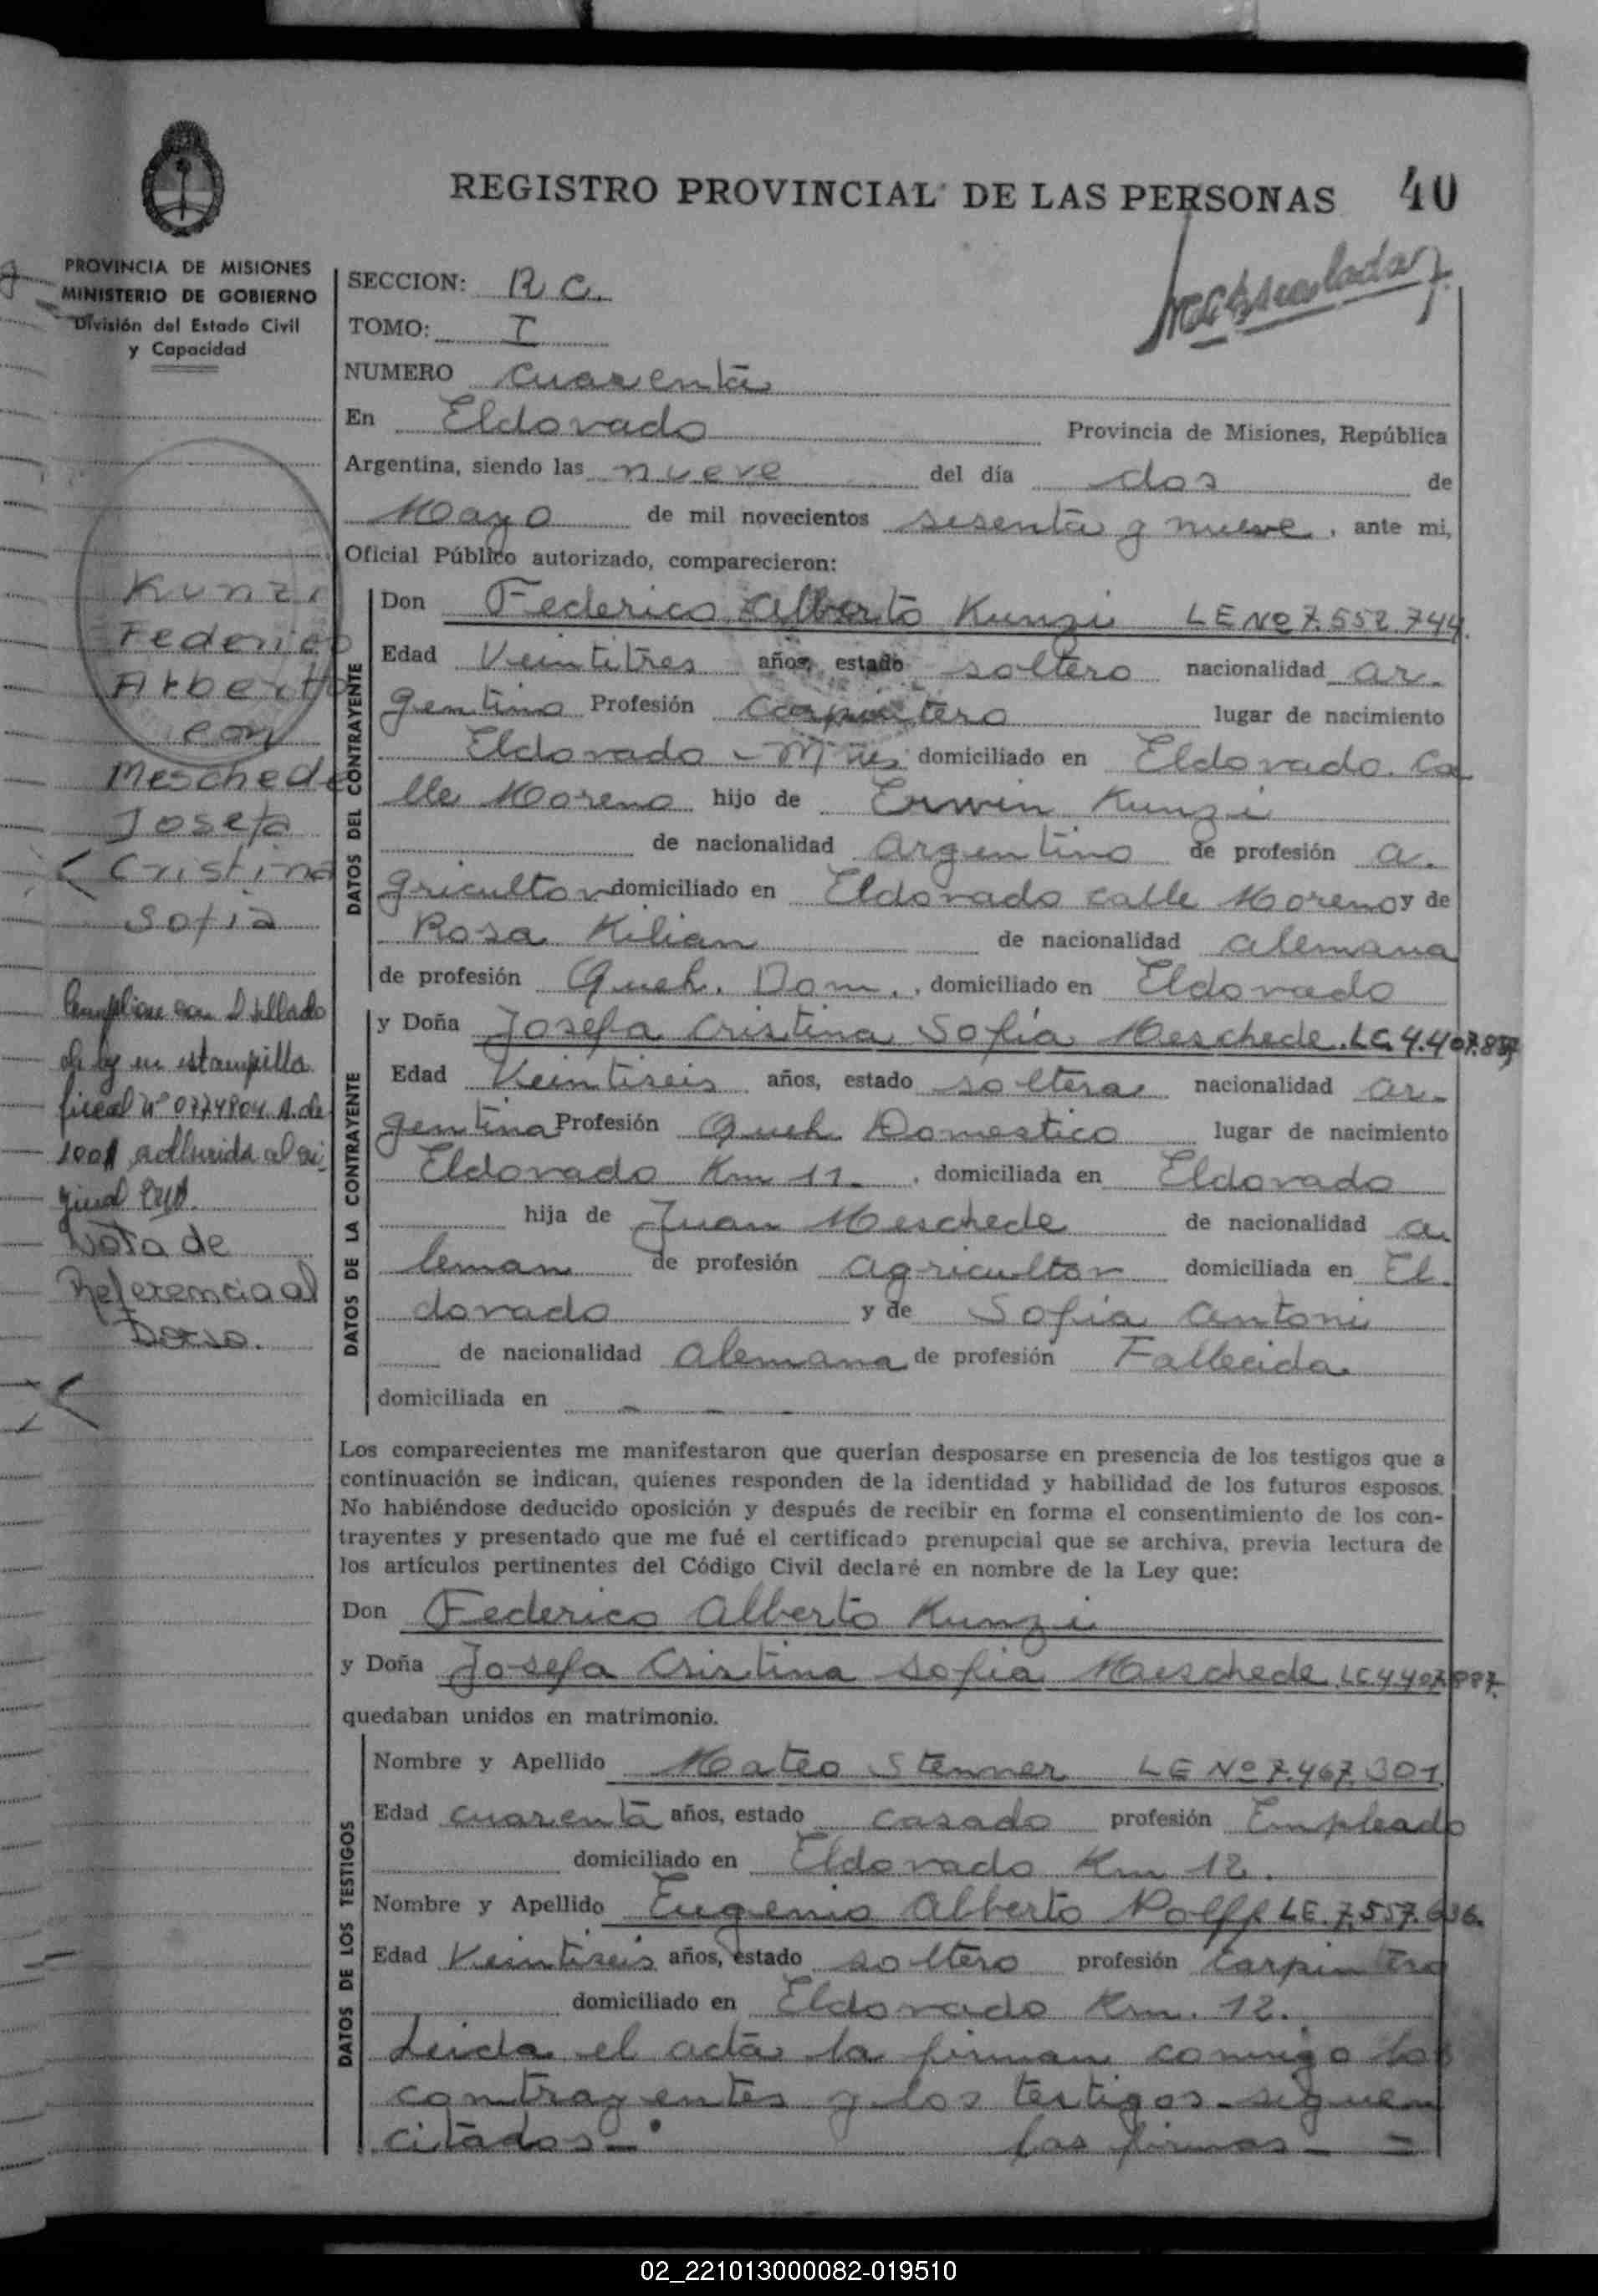 REGISTRO PROVINCIAL DE LAS PERSONAS 40
PROVINCIA DE MISIONES
MINISTERIO DE GOBIERNO
División del Estado Civil
y Capacidad
SECCION: R C.
TOMO: I
NUMERO cuarenta
En Eldorado Provincia de Misiones, República
Argentina, siendo las nueve del día dos de
Mayo de mil novecientos sesenta y nueve, ante mi,
Oficial Público autorizado, comparecieron:
Kunzi
Federico
Alberto
con
Meschede
Josefa
Cristina
Sofia
fiscal Nº 0774804 A. de
Nota de
Referencia al
Dorso.
DATOS DEL CONTRAYENTE
Don Federico Alberto Kunzi LE Nº 7.552.744.
Edad Veintitres años, estado soltero nacionalidad ar-
gentino Profesión Carpintero lugar de nacimiento
Eldorado - Mnes domiciliado en Eldorado. Ca
lle Moreno hijo de Erwin Kunzi
de nacionalidad argentino de profesión a.
gricultor domiciliado en Eldorado calle Moreno y de
Rosa Kilian de nacionalidad alemana
de profesión Queh. Dom., domiciliado en Eldorado
DATOS DE LA CONTRAYENTE
y Doña Josefa Cristina Sofía Meschede. LC. 4.407.887
Edad Veintiseis años, estado soltera nacionalidad ar-
gentina Profesión Queh. Domestico lugar de nacimiento
Eldorado Km 11., domiciliada en Eldorado
hija de Juan Meschede de nacionalidad a
leman de profesión agricultor domiciliada en El.
dorado y de Sofia Antoni
de nacionalidad Alemana de profesión Fallecida
domiciliada en - - -
Los comparecientes me manifestaron que querían desposarse en presencia de los testigos que a
continuación se indican, quienes responden de la identidad y habilidad de los futuros esposos.
No habiéndose deducido oposición y después de recibir en forma el consentimiento de los con-
trayentes y presentado que me fué el certificado prenupcial que se archiva, previa lectura de
los artículos pertinentes del Código Civil declaré en nombre de la Ley que:
Don Federico Alberto Kunzi
y Doña Josefa Cristina Sofia Meschede. LC. 4.407.887.
quedaban unidos en matrimonio.
DATOS DE LOS TESTIGOS
Nombre y Apellido Mateo Stenner LE Nº 7.467.301
Edad cuarenta años, estado casado profesión Empleado
domiciliado en Eldorado Km 12.
Nombre y Apellido Eugenio Alberto Rolff LE. 7.557.636.
Edad Veintiseis años, estado soltero profesión Carpintero
domiciliado en Eldorado Km. 12.
Leida el acta la firman conmigo los
contrayentes y los testigos. siguen
citados.- las firmas - =
02_221013000082-019510